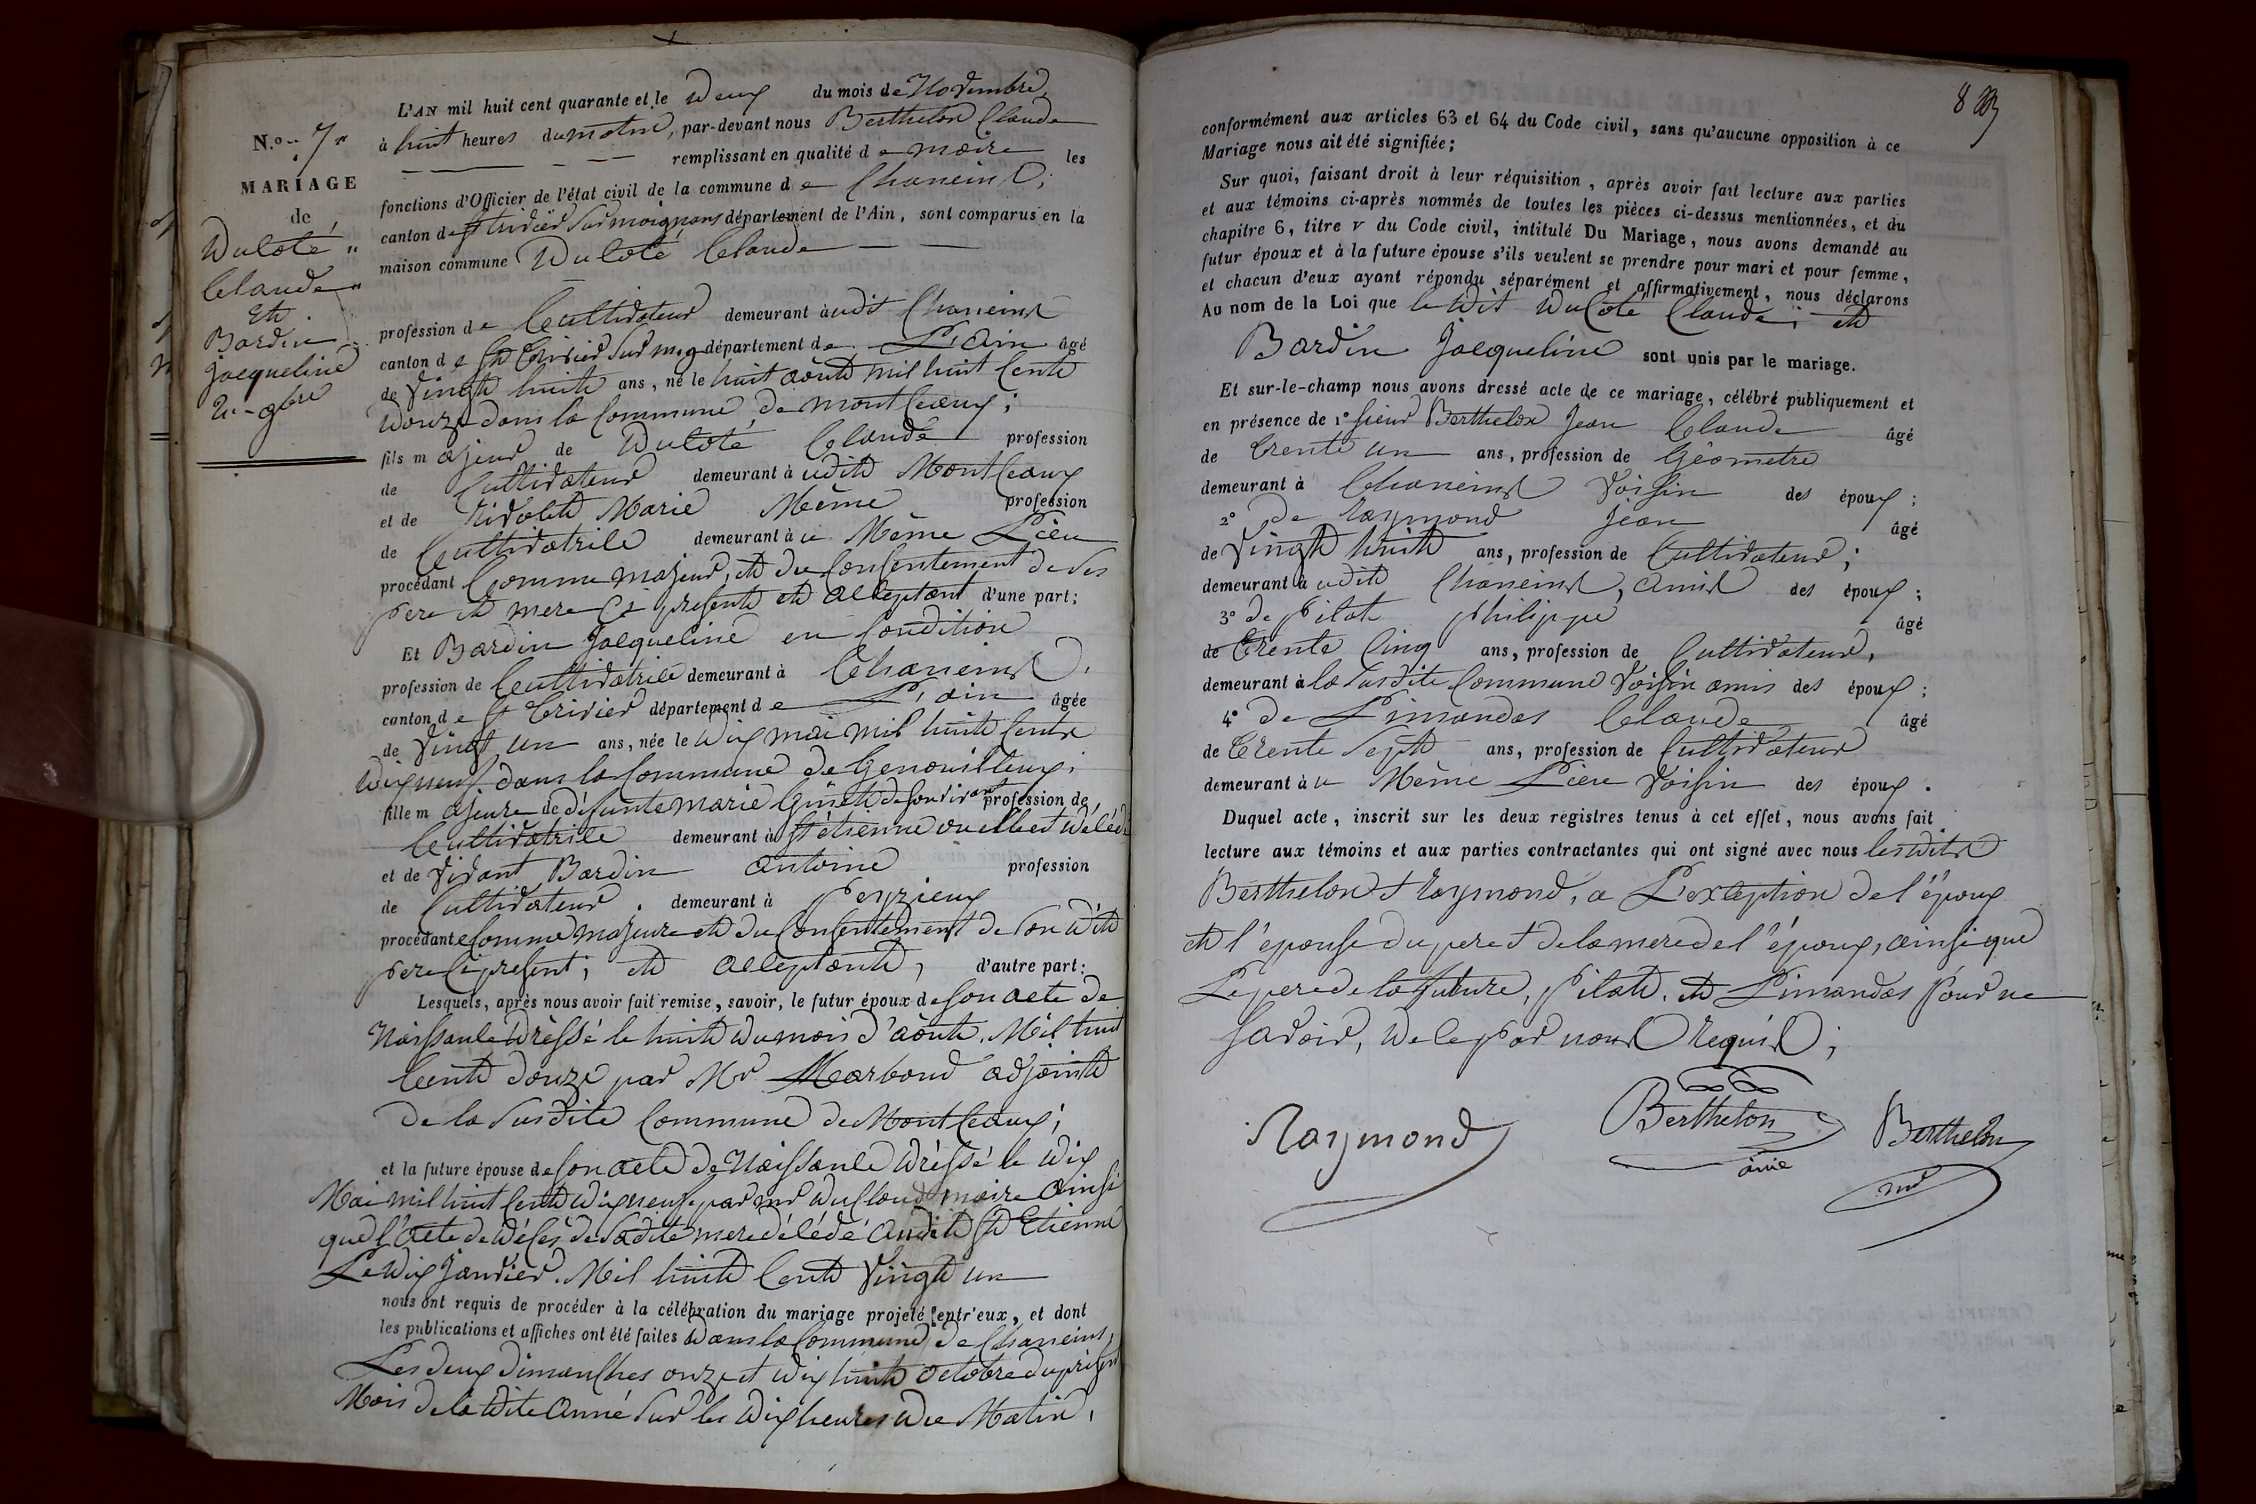 N.º 7"
MARIAGE
de
Duloté "
Claude "
Et
Bardin
Jacqueline
2. 9bre
L'AN mil huit cent quarante et le deux du mois de Novembre,
à huit heures du matin, par-devant nous Berthelon Claude
remplissant en qualité de maire les
fonctions d'Officier de l'état civil de la commune de Chaneins,
canton de St trivier Sur moignans département de l'Ain, sont comparus en la
maison commune Duloté Claude
profession de Cultivateur demeurant audit Chaneins
canton de St Trivier Sur mog département de L'ain âgé
de Vingt huit ans, né le huit août mil huit Cent
douze dans la Commune de montCeaux;
fils majeur de Duloté Claude profession
de Cultivateur demeurant à udit MontCeaux
et de Marie Même profession
de Cultivatrice demeurant à u Même Lieu
procédant Comme majeur, et du Consentement de Ses
pere et mere Ci present et acceptant d'une part;
Et Bardin Jacqueline en Condition
profession de Cultivatrice demeurant à Chaneins,
canton de St Trivier département de L'ain âgée
de Vingt un ans, née le dix mai mil huit Cent
dixneuf dans la Commune de Genouilleux;
fille majeure de défunte marie de Son vivant profession de
Cultivatrice demeurant à St étienne ou elle est
et de Vivant Bardin antoine profession
de Cultivateur. demeurant à Peyzieux
procédante Comme majeure et du Consentement de Son dit
pere Ci present; et acceptant, d'autre part:
Lesquels, après nous avoir fait remise, savoir, le futur époux de Son acte de
Naissance dressé le huit du mois d'août, Mil huit
Cent douze par Mr Marboud adjoint
de la Susdite Commune de MontCeaux;
et la future épouse de Son acte de Naissance dressé le dix
Mai mil huit Cent dixneuf par mr maire ainsi
que l'acte de décés de Sadite mere décédé audit St Etienne
Le dix Janvier. Mil huit Cent Vingt un
nous ont requis de procéder à la célébration du mariage projeté entr'eux, et dont
les publications et affiches ont été faites dans la Commune de Chaneins,
Les deux dimanches onze et dix huit octobre du présent
Mois de la dite anné Sur les dix heures du Matin,
8
conformément aux articles 63 et 64 du Code civil, sans qu'aucune opposition à ce
Mariage nous ait été signifiée;
Sur quoi, faisant droit à leur réquisition, après avoir fait lecture aux parties
et aux témoins ci-après nommés de toutes les pièces ci-dessus mentionnées, et du
chapitre 6, titre v du Code civil, intitulé Du Mariage, nous avons demandé au
futur époux et à la future épouse s'ils veulent se prendre pour mari et pour femme,
et chacun d'eux ayant répondu séparément et affirmativement, nous déclarons
Au nom de la Loi que le dit Duloté Claude; et
Bardin Jacqueline sont unis par le mariage.
Et sur-le-champ nous avons dressé acte de ce mariage, célébré publiquement et
en présence de 1º Sieur Berthelon Jean Claude âgé
de Trente un ans, profession de Géometre
demeurant à Chaneins Voisin des époux;
2º De Raymond Jean âgé
de Vingt huit ans, profession de Cultivateur;
demeurant à udit Chaneins, amis des époux;
3º de Pilat Philippe âgé
de Trente Cinq ans, profession de Cultivateur,
demeurant à la Susdite Commune Voisin amis des époux;
4º de Limandas Claude âgé
de Trente Sept ans, profession de Cultivateur
demeurant à u Même Lieu Voisin des époux.
Duquel acte, inscrit sur les deux registres tenus à cet effet, nous avons fait
lecture aux témoins et aux parties contractantes qui ont signé avec nous lesdits
Berthelon & Raymond, a L'exception de l'époux
et l'épouse du pere & de la mere de l'époux, ainsi que
Le pere de la future, Pilat, et Limandas pour ne
Savoir, de ce par nous requis;
Raymond
Berthelon
Berthelon